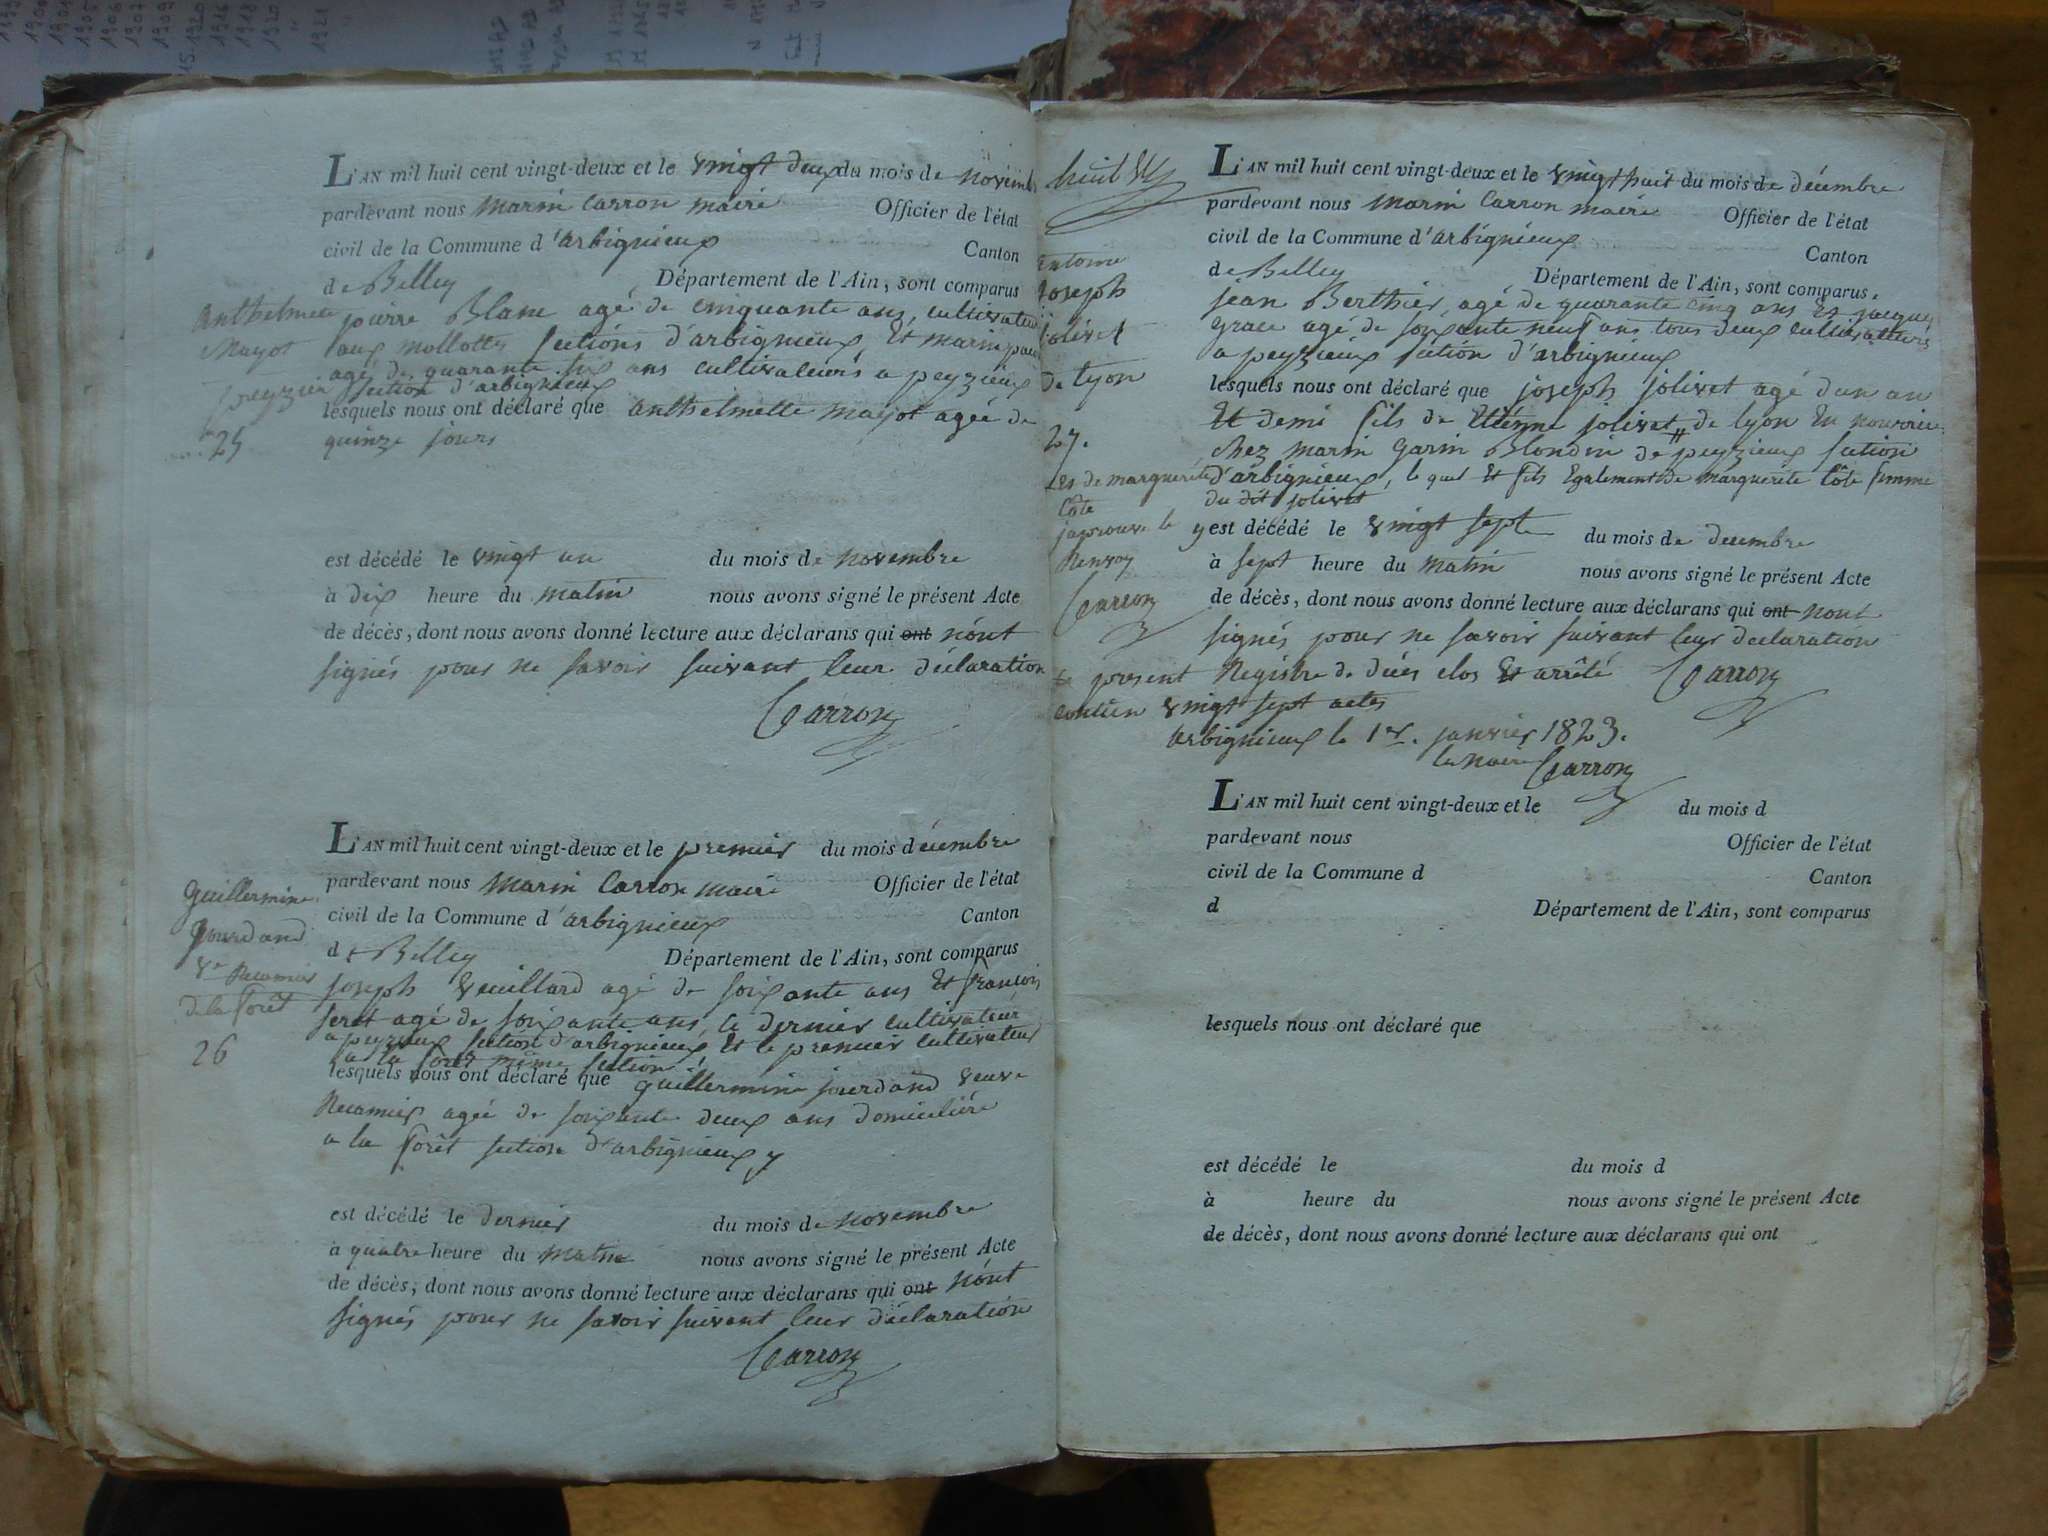 L'AN mil huit cent vingt-deux et le vingt deux du mois de novemb
pardevant nous marin Carron maire Officier de l'état
civil de la Commune d'arbignieux Canton
de Belley Département de l'Ain, sont comparus
Anthelmette
Mayot
peyzieu
25
pierre Blanc agé de cinquante ans, cultivateur
aux mollottes sections d'arbignieux Et marin
agé de quarante six ans cultivateurs a peyzieux
section d'arbignieux
lesquels nous ont déclaré que anthelmette mayot agée de
quinze jours
est décédé le vingt un du mois de novembre
à dix heure du matin nous avons signé le présent Acte
de décès, dont nous avons donné lecture aux déclarans qui ont n'ont
signés pour ne savoir suivant leur déclaration
Carron
L'AN mil huit cent vingt-deux et le premier du mois décembre
pardevant nous Marin Carron maire Officier de l'état
civil de la Commune d'arbignieux Canton
de Belley Département de l'Ain, sont comparus
guillermine
jourdand
Ve Recamier
de la forêt
26
joseph Veuillard agé de soixante ans Et francois
seret agé de soixante ans, le dernier cultivateur
a peyzieux section d'arbignieux Et le premier cultivateur
a la forêt même section
lesquels nous ont déclaré que guillermine jourdand veuve
Recamier agée de soixante deux ans domiciliée
a la forêt section d'arbignieux
est décédé le dernier du mois de novembre
à quatre heure du matin nous avons signé le présent Acte
de décès, dont nous avons donné lecture aux déclarans qui ont n'ont
signés pour ne savoir suivant leur déclaration
Carron
huit
L'AN mil huit cent vingt-deux et le vingt huit du mois de décembre
pardevant nous marin Carron maire Officier de l'état
civil de la Commune d'arbignieux Canton
de Belley Département de l'Ain, sont comparus
antoine
joseph
jolivet
de lyon
27.
jean Berthier, agé de quarante cinq ans Et jacques
grace agé de soixante neuf ans tous deux cultivateurs
a peyzieux section d'arbignieux
lesquels nous ont déclaré que joseph jolivet agé d'un an
Et demi fils de Etienne jolivet de lyon En nourrice
chez marin garin Blondin de peyzieux section
d'arbignieux, le quel Et fils Egalement de marguerite Côte femme
du dit jolivet
Et de marguerite
Côte
japrouve le
Renvoy
Carron
est décédé le vingt sept du mois de decembre
à sept heure du matin nous avons signé le présent Acte
de décès, dont nous avons donné lecture aux déclarans qui ont nont
signés pour ne savoir suivant leur declaration
Carron
Le present Registre de décès clos Et arrêté
contien vingt sept actes
arbignieux le 1er. janvier 1823.
le maire Carron
L'AN mil huit cent vingt-deux et le du mois d
pardevant nous Officier de l'état
civil de la Commune d Canton
d Département de l'Ain, sont comparus
lesquels nous ont déclaré que
est décédé le du mois d
à heure du nous avons signé le présent Acte
de décès, dont nous avons donné lecture aux déclarans qui ont